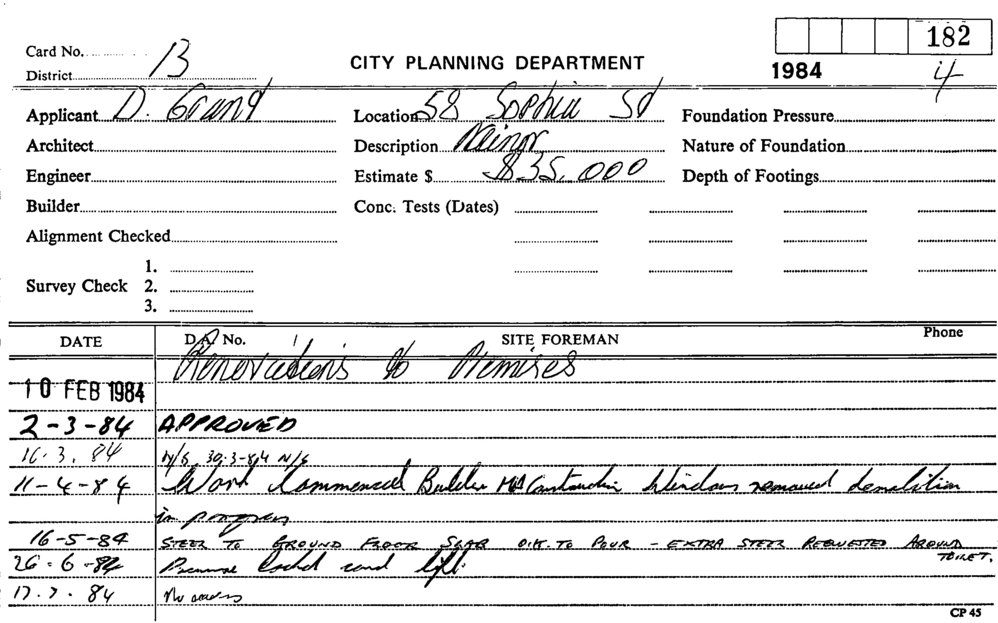 182
Card No. B
CITY PLANNING DEPARTMENT
1984 4
District
Applicant D. Grant Location 58 Sophia St Foundation Pressure
Architect Description Minor Nature of Foundation
Engineer Estimate $ $35,000 Depth of Footings
Builder Conc. Tests (Dates)
Alignment Checked
1.
Survey Check 2.
3.
DATE D.A. No. SITE FOREMAN Phone
Renovations to Premises
10 FEB 1984
2-3-84 APPROVED
16.3.84 N/S 30-3-84 N/S
11-4-84 Work Commenced Builder Construction Windows removed demolition
in progress
16-5-84 STEEL TO GROUND FLOOR SLAB O.K. TO POUR - EXTRA STEEL REQUESTED AROUND
TOILET.
26-6-84 Premise locked and left.
17.7.84 No access
CP 45